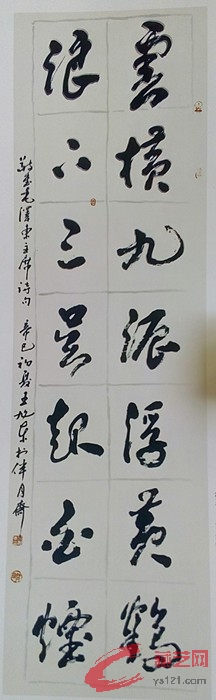 雲横九派浮黄鶴
浪下三吴起白煙
敬书毛泽东主席诗句 辛巳初夏王旭东于伴月斋
云艺网
ys121.com